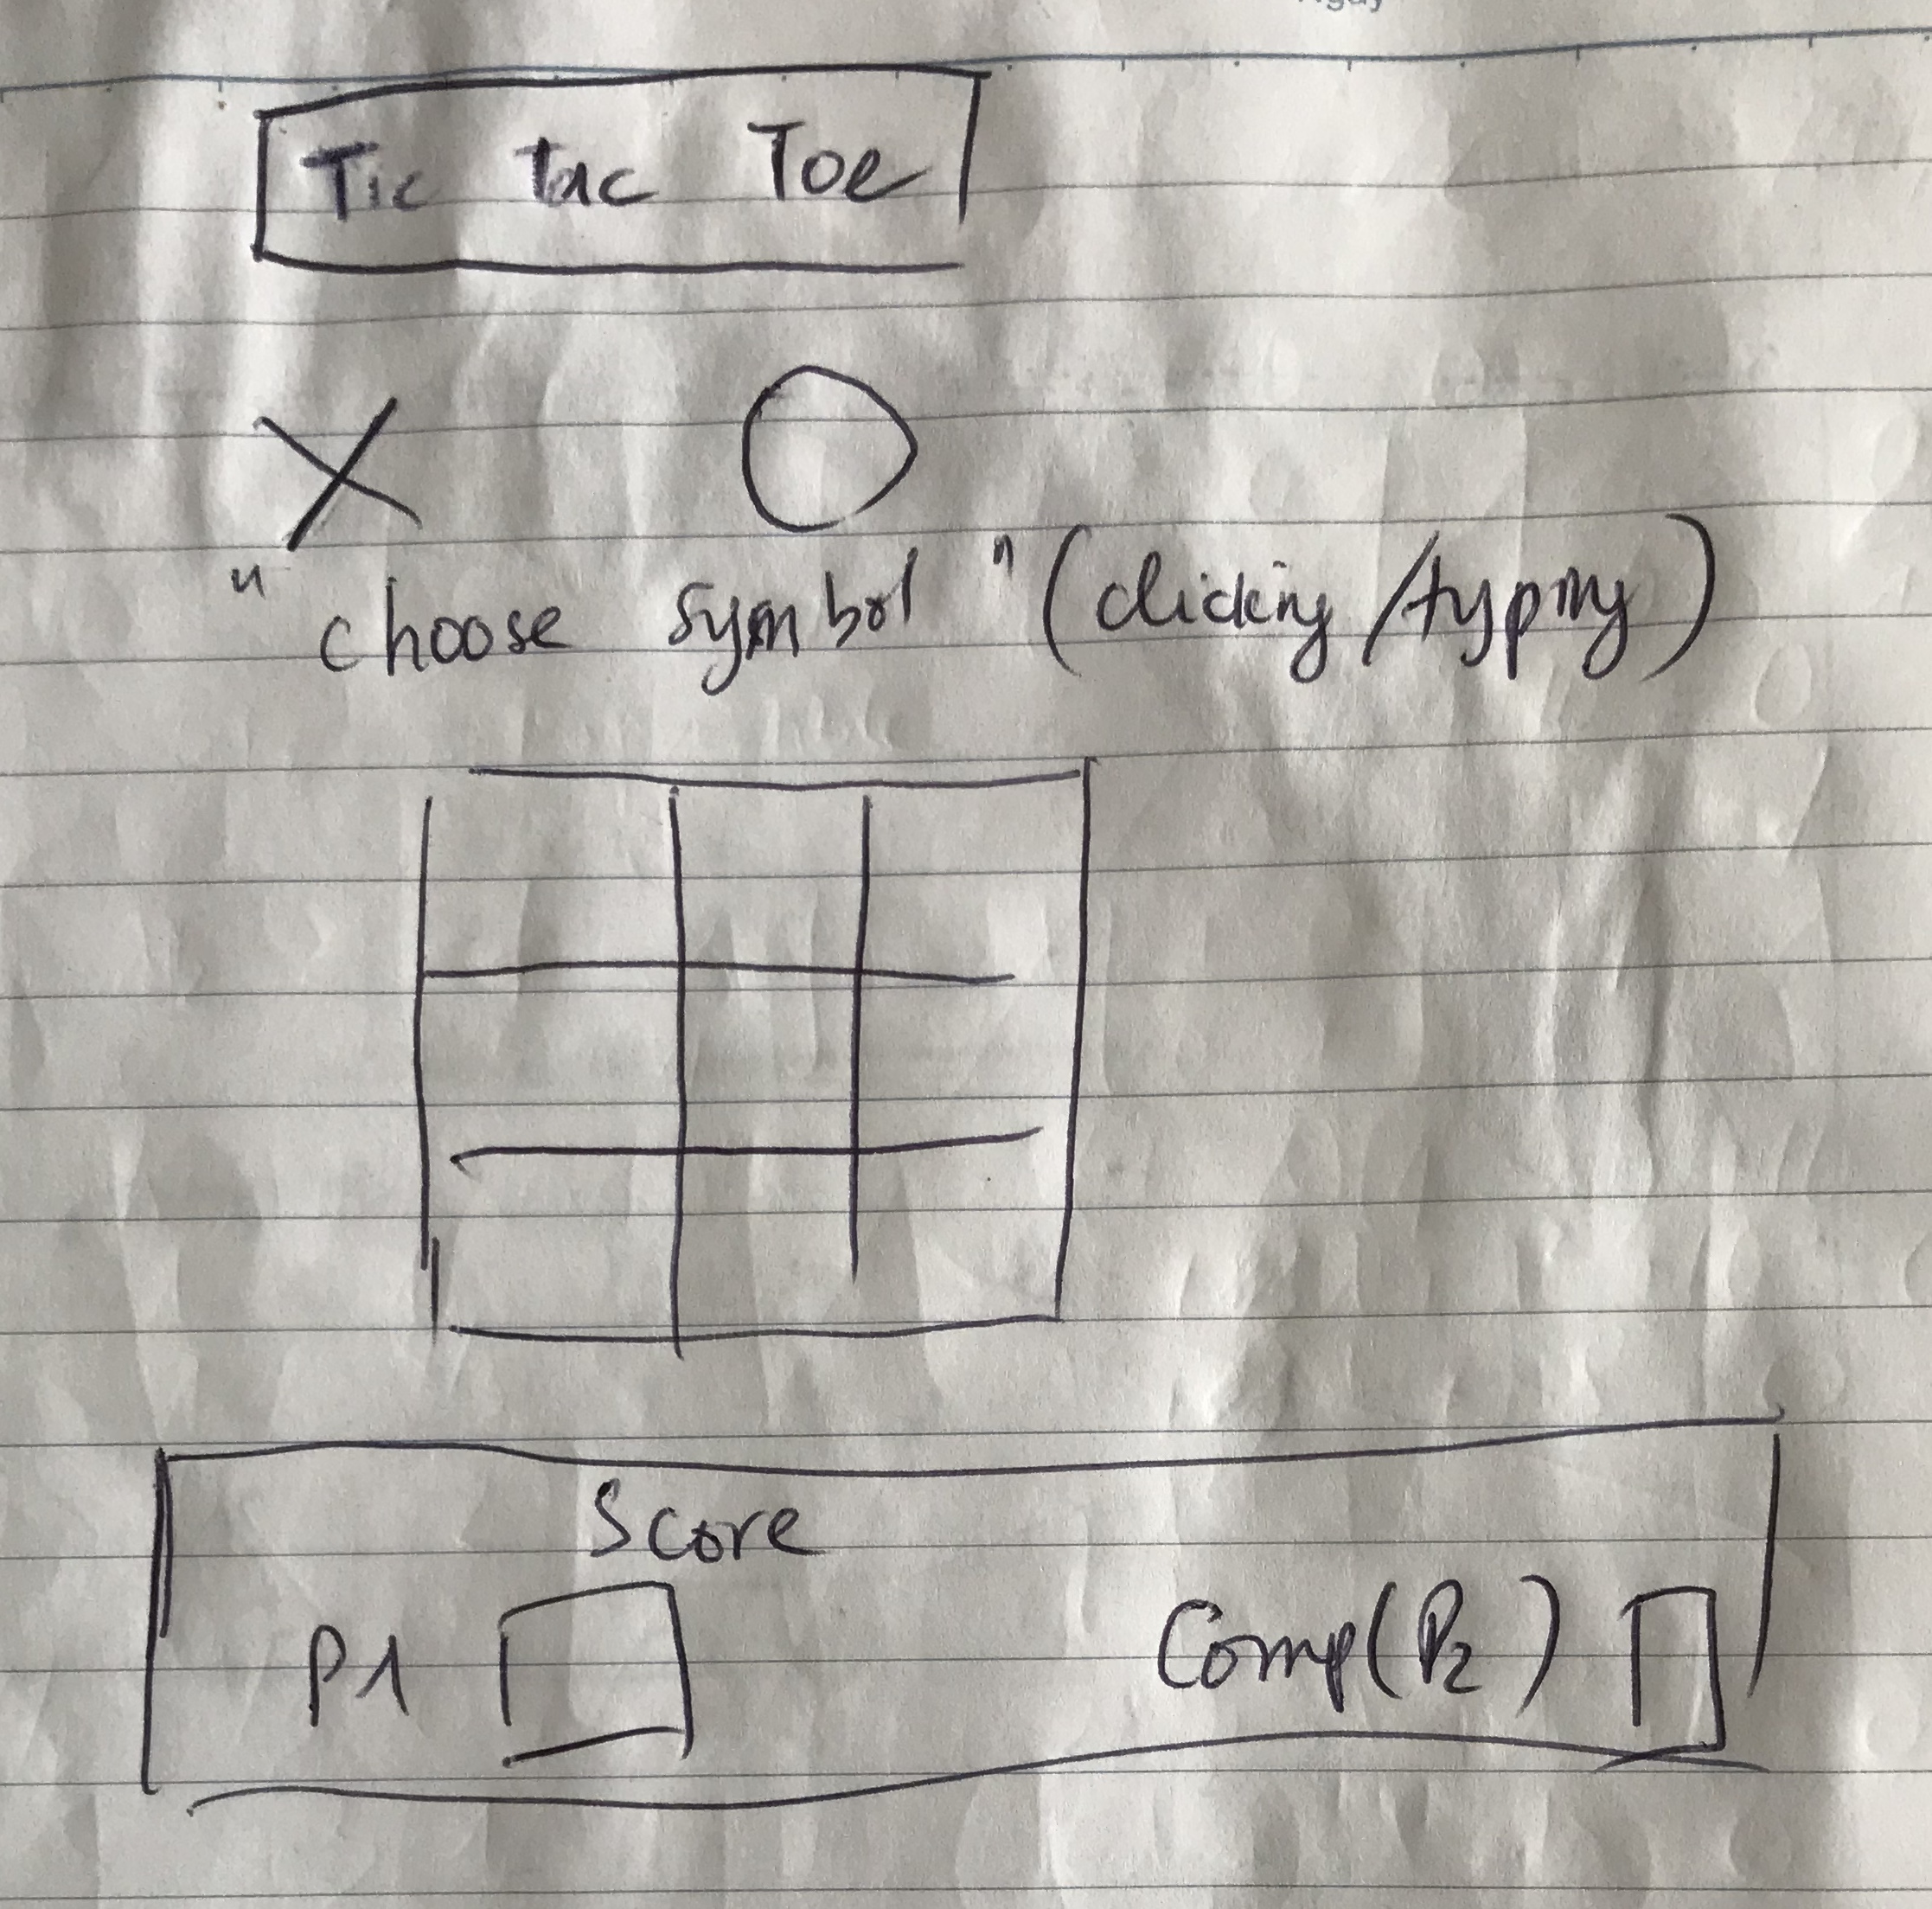 Tic Tac Toe
X O
"choose symbol" (clicking/typing)
Score
P1 Comp(P2)